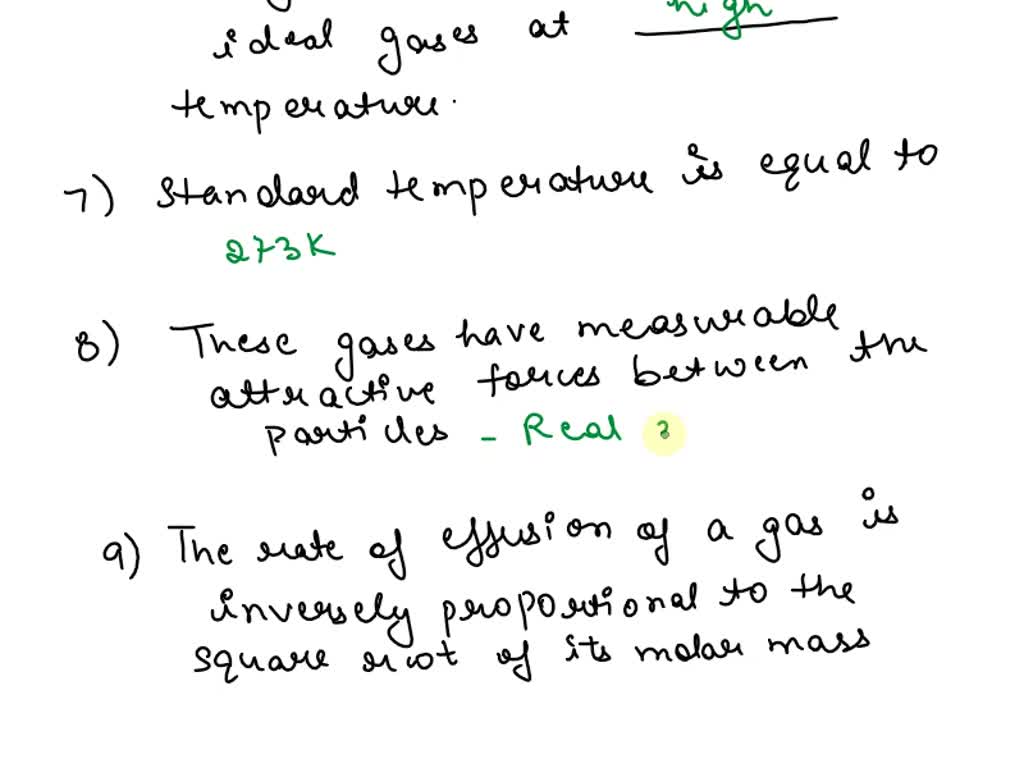 high
ideal gases at
temperature.
7) Standard temperature is equal to
273K
8) These gases have measurable
attractive forces between the
particles - Real
9) The rate of effusion of a gas is
inversely proportional to the
square root of its molar mass